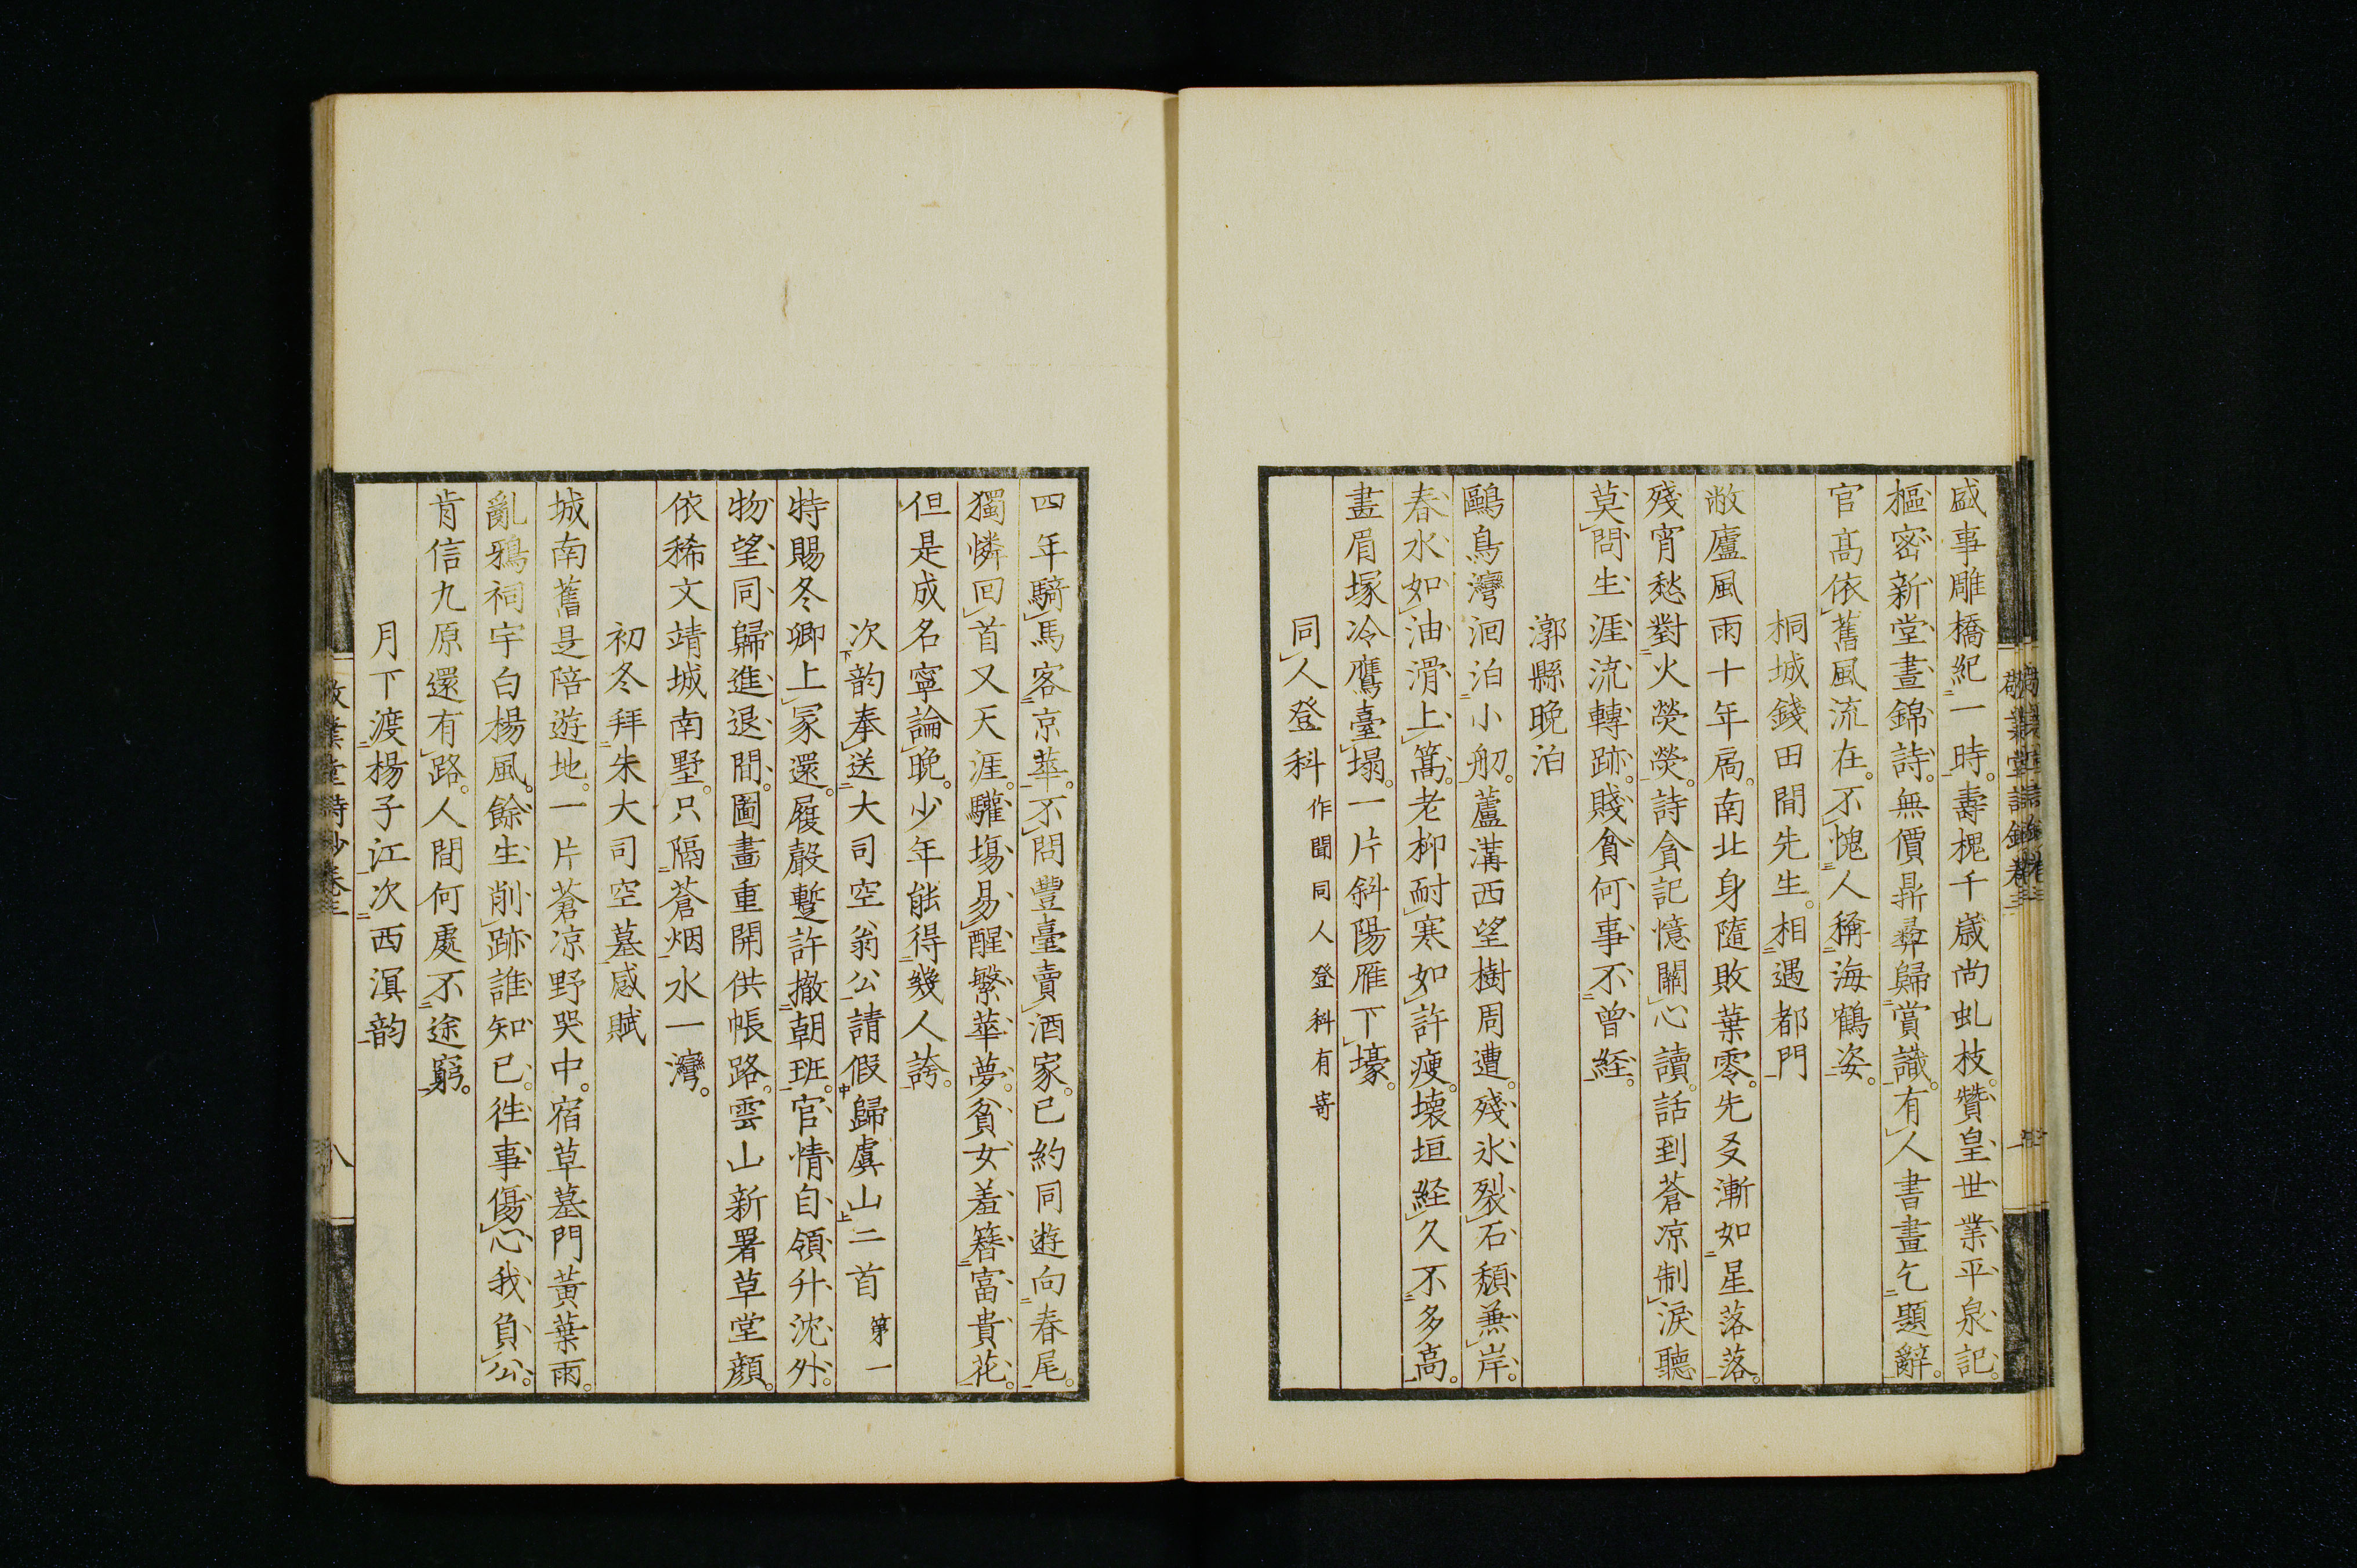 盛事雕橋紀一時。壽槐千嵗尚虬枝。贊皇世業平泉記。
樞密新堂晝錦詩。無價鼎彝歸賞識。有人書畫乞題辭。
官髙依舊風流在。不愧人稱海鶴姿。
桐城錢田間先生。相遇都門
敝廬風雨十年扃。南北身隨敗葉零。先友漸如星落落。
殘宵愁對火熒熒。詩貪記憶關心讀。話到蒼凉制淚聽
莫問生涯流轉跡。賤貧何事不曾経。
漷縣晩泊
鷗鳥灣洄泊小舠。蘆溝西望樹周遭。殘氷裂石頽兼岸。
春水如油滑上篙。老柳耐寒如許瘦。壊垣経久不多高。
畫眉塚冷鷹臺塌。一片斜陽雁下壕。
同人登科作聞同人登科有寄
四年騎馬客京華。不問豐臺賣酒家。已約同遊向春尾。
獨憐回首又天涯。驩塲易醒繁華夢。貧女羞簪富貴花。
但是成名寧論晩。少年能得幾人誇。
次韵奉送大司空翁公請假歸虞山二首 第一
特賜冬卿上冡還。履聲暫許撤朝班。官情自領升沈外。
物望同歸進退間。圖畫重開供帳路。雲山新署草堂顔。
依稀文靖城南墅。只隔蒼烟水一灣。
初冬拜朱大司空墓感賦
城南舊是陪遊地。一片蒼凉野哭中。宿草墓門黃葉雨。
亂鴉祠宇白楊風。餘生削跡誰知已。徃事傷心我負公。
肯信九原還有路。人間何處不途窮。
月下渡楊子江次西溟韵
敬業堂詩鈔卷三
八